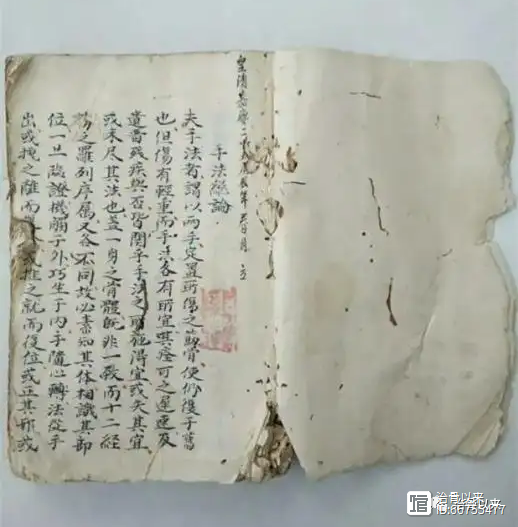 皇清嘉慶二十 年 月 立
手法総論
夫手法者謂以两手安置所傷之筋骨使仍復于舊
也但傷有輕重而手法各有所宜其痊可之遲速及
遺留残疾與否皆関乎手法之所施得宜或失其宜
或未尽其法也盖一身之骨體既非一致而十二経
筋之羅列序属又各不同故必素知其体相識其部
位一旦臨證機觸于外巧生于内手隨心轉法從手
出或拽之離而 或推之就而復位或正其邪或
治骨以来
ID:66755477